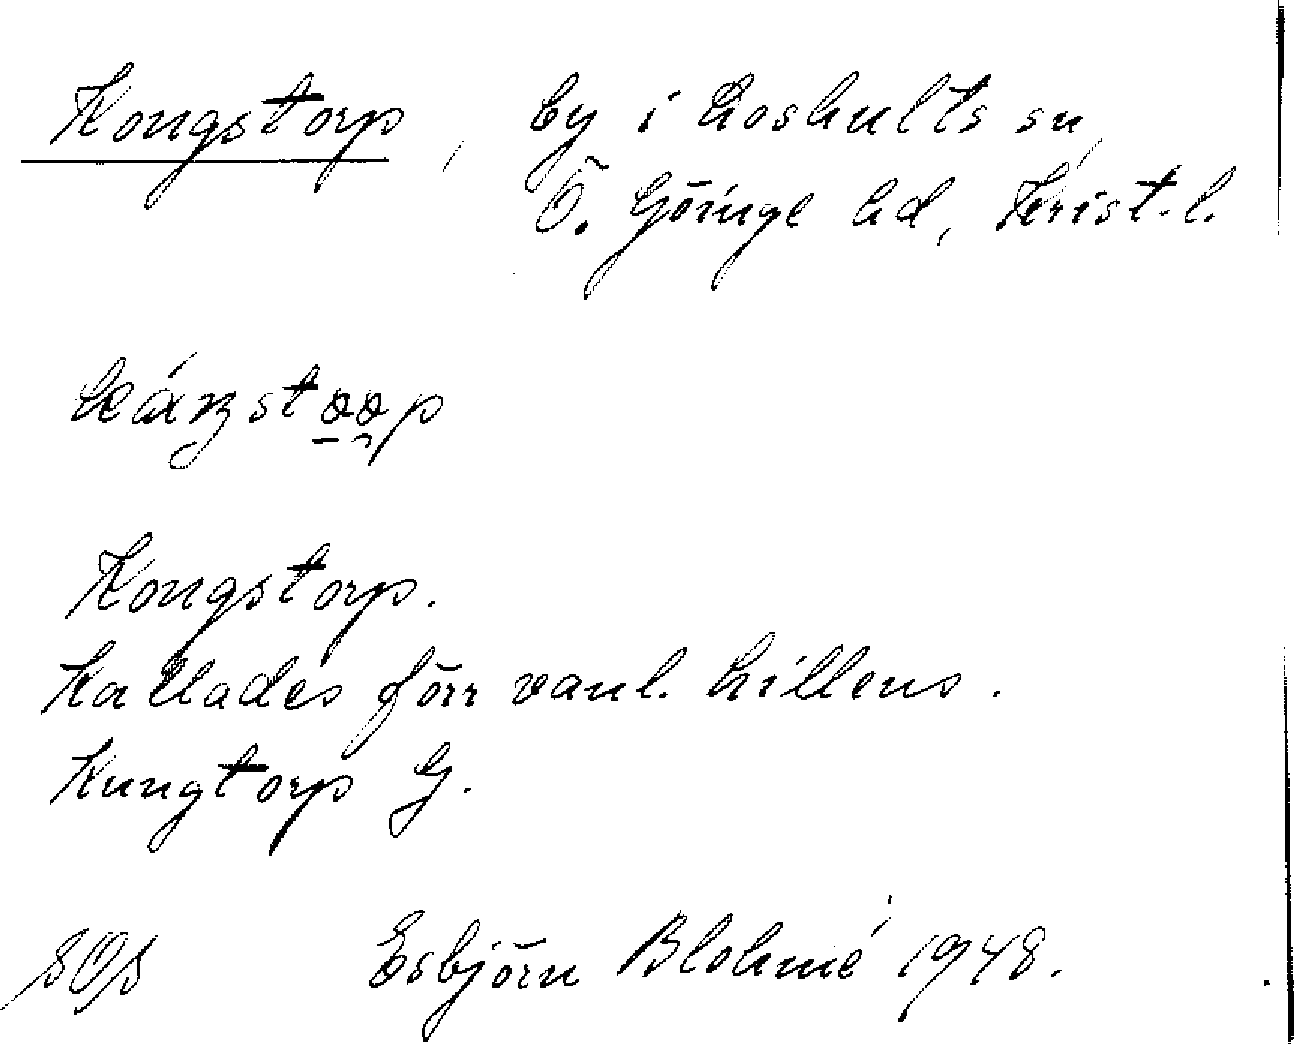 Kongstorp, by i Loshults sn,
Ö. Göinge hd, Krist. l.
Kongstorp.
Kallades förr vanl. hillens.
Kungtorp G.
Esbjörn Blohmé 1948.